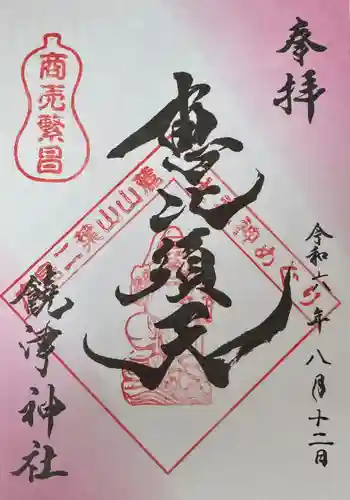 奉拝
商売繁昌
恵比須天
二葉山山麓
令和六年八月十二日
饒津神社